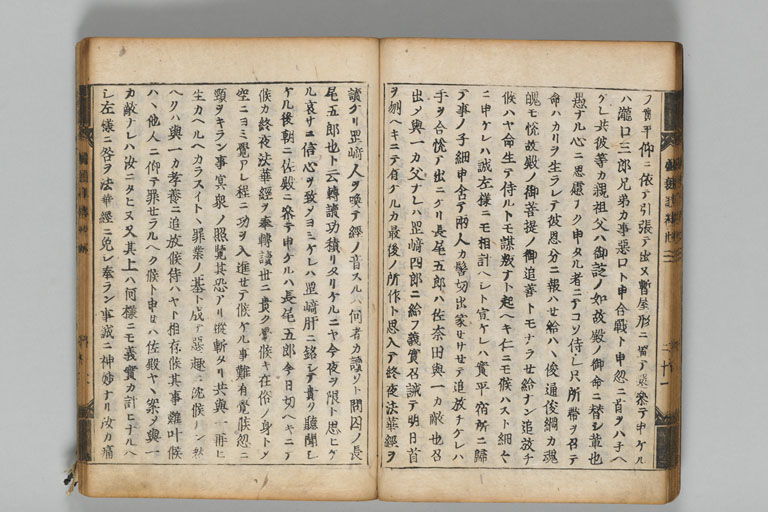 ノ實平仰ニ依テ引張テ出ヌ暫屋形ニ置テ參テ申ケル
ハ瀧口三郎兄弟カ事惡口ト申合戰ト申忽ニ首ヲハヂヘ
ケレ共彼等カ親祖父ハ御諚ノ如故殿ノ御命ニ替シ輩也
愚ナル心ニ思慮ナク申タル者ニテコソ侍レ只所帶ヲ召テ
命ハカリヲ生ラレテ彼恩分ニ報ハセ給ハヽ俊通俊綱カ魂
魄モ悅故殿ノ御菩提ノ御追善トモナラセ給ナン追放チ
候ハヤ命生テ侍ルトモ謀叛ナト起ヘキ仁ニモ候ハスト細々
ニ申ケレハ誠左樣ニモ相計ヘシト宣ケレハ實平宿所ニ歸
テ事ノ子細申含テ兩人カ髻切出家セサセテ追放チケレハ
手ヲ合悅テ出ニケリ長尾五郎ハ佐奈田與一カ敵也召
出メ與一カ父ナレハ岡﨑四郎ニ給フ義實召誡テ明日首
ヲ刎ヘキニテ有ケルカ最後ノ所作ト思入テ終夜法華經ヲ
讀ケリ岡﨑人ヲ喚テ經ノ音スルハ何者カ讀ソト問囚ノ長
尾五郎也ト云轉讀功積リタリケルニヤ今夜ヲ限ト思ヒケ
ル哀サニ信心ヲ致メヨミケレハ岡﨑肝ニ銘シテ貴ク聽聞シ
ケル後朝ニ佐殿ニ參テ申ケルハ長尾五郎今日切ヘキニテ
候カ終夜法華經ヲ奉轉讀世ニ貴ク覺候キ在俗ノ身トメ
空ニヨミ覺アレ程ニ功ヲ入進セテ候ケル事難有覺候忽ニ
頸ヲキラン事冥衆ノ照覽其恐アリ縱斬タリ共與一再ニ
生カヘルヘカラスイトヽ罪業ノ基ト成テ惡趣ニ沈候ナン然
ヘクハ與一カ孝養ニ追放候侍ハヤト相存候其事難叶候
ハヽ他人ニ仰テ罪セラルヘク候ト申セハ佐殿ヤヽ案メ與一
カ敵ナレハ汝ニタヒヌ又其上ハ何樣ニモ義實カ計ヒナルヘ
シ左樣ニ咎ヲ法華經ニ免シ奉ラン事誠ニ神妙ナリ汝カ痛